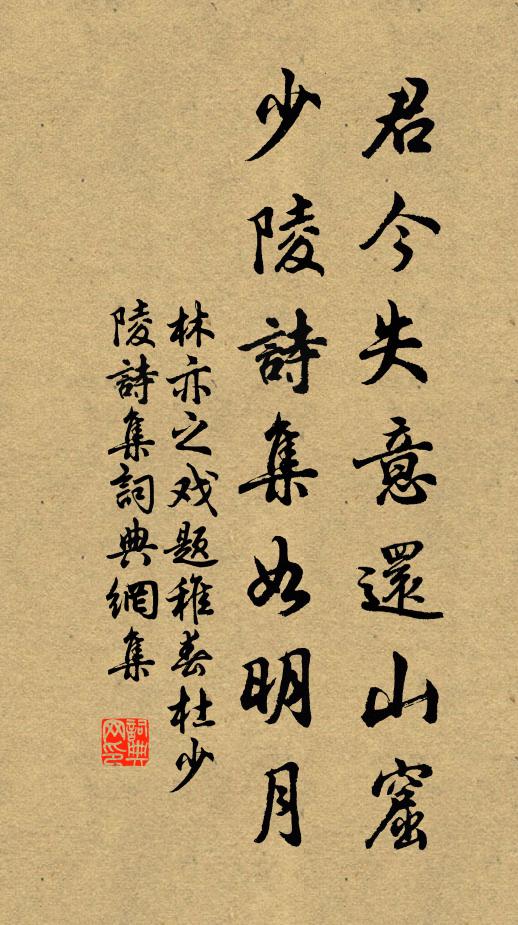 君今失意還山窟
少陵詩集如明月
林亦之戏题稚春杜少
陵詩集詞典網集
詞典网印